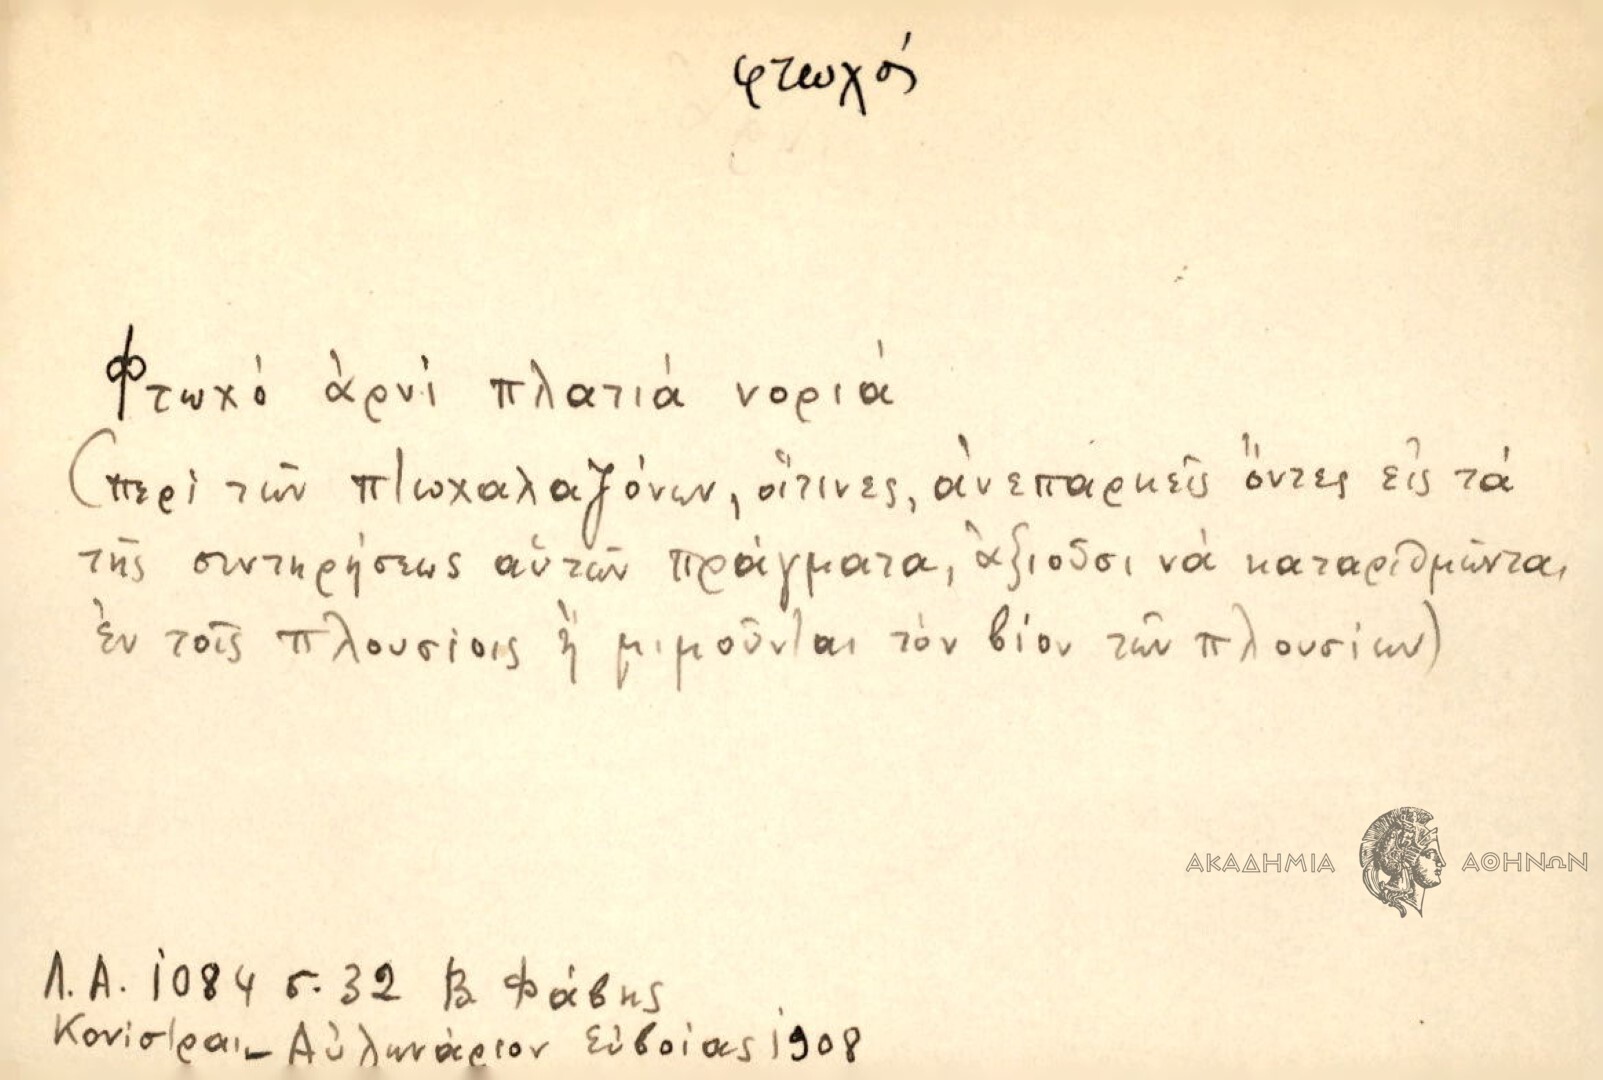 φτωχός
Φτωχό ἀρνὶ πλατιά νοριά
(περὶ τῶν πτωχαλαζόνων, οἵτινες, ἀνεπαρκεῖς ὄντες εἰς τά
τῆς συντηρήσεως αὐτῶν πράγματα, ἀξιοῦσι νά καταριθμῶνται
ἐν τοῖς πλουσίοις ἤ μιμοῦνται τόν βίον τῶν πλουσίων)
ΑΚΑΔΗΜΙΑ ΑΘΗΝΩΝ
Λ.Α. 1084 σ. 32 Β. Φάβης
Κονίστραι - Αὐλωνάριον Εὐβοίας 1908